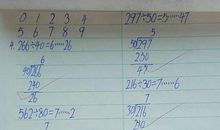 0 1 2 3 4
5 6 7 8 9
4. 266÷40=6……26
6
40)266
240
26
562÷80=7……2
7
297÷50=5……47
5
50)297
250
47
216÷30=7……6
7
30)216
210